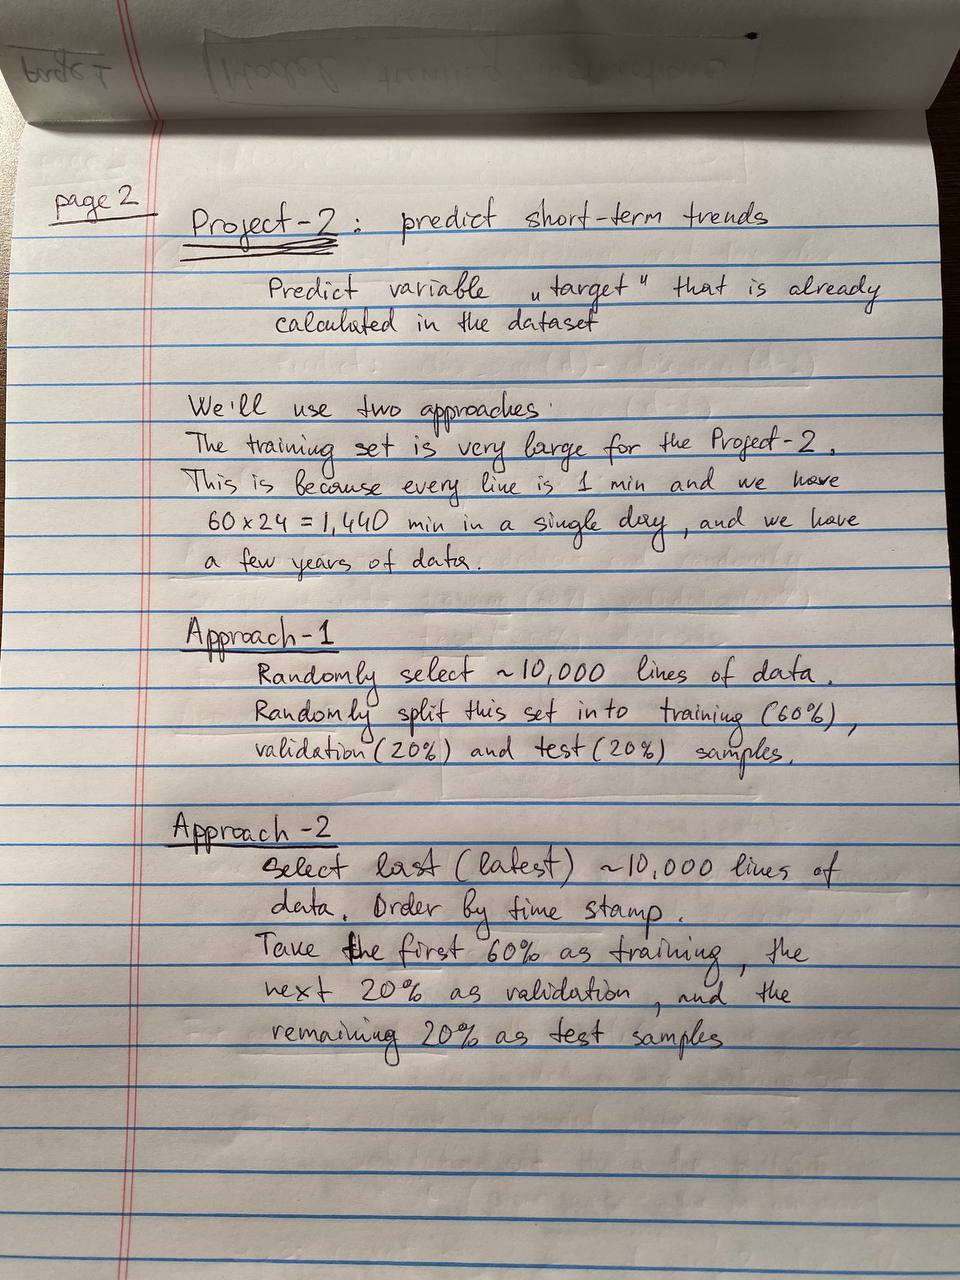 page 2
Project-2: predict short-term trends
Predict variable „target" that is already
calculated in the dataset
We'll use two approaches.
The training set is very large for the Project-2.
This is because every line is 1 min and we have
60 x 24 = 1,440 min in a single day, and we have
a few years of data.
Approach-1
Randomly select ~10,000 lines of data.
Randomly split this set into training (60%),
validation (20%) and test (20%) samples.
Approach-2
Select last (latest) ~10,000 lines of
data. Order by time stamp.
Take the first 60% as training, the
next 20% as validation, and the
remaining 20% as test samples